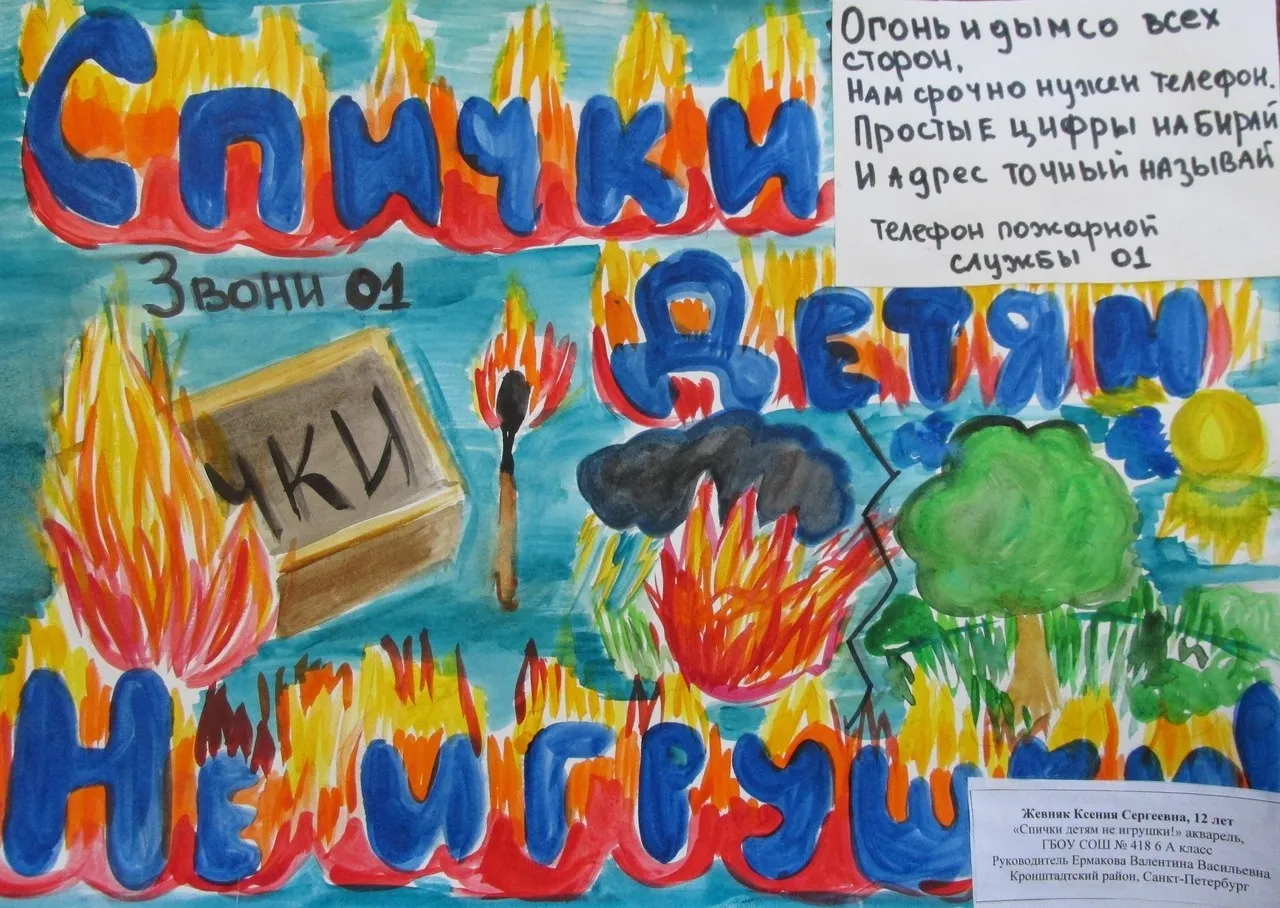 Спички
Огонь и дым со всех
сторон,
Нам срочно нужен телефон.
Простые цифры набирай
И адрес точный называй
Телефон пожарной
службы 01
Звони 01
Детям
чки
Не игрушки!
Жевняк Ксения Сергеевна, 12 лет
«Спички детям не игрушки!» акварель,
ГБОУ СОШ № 418 6 А класс
Руководитель Ермакова Валентина Васильевна
Кронштадтский район, Санкт-Петербург